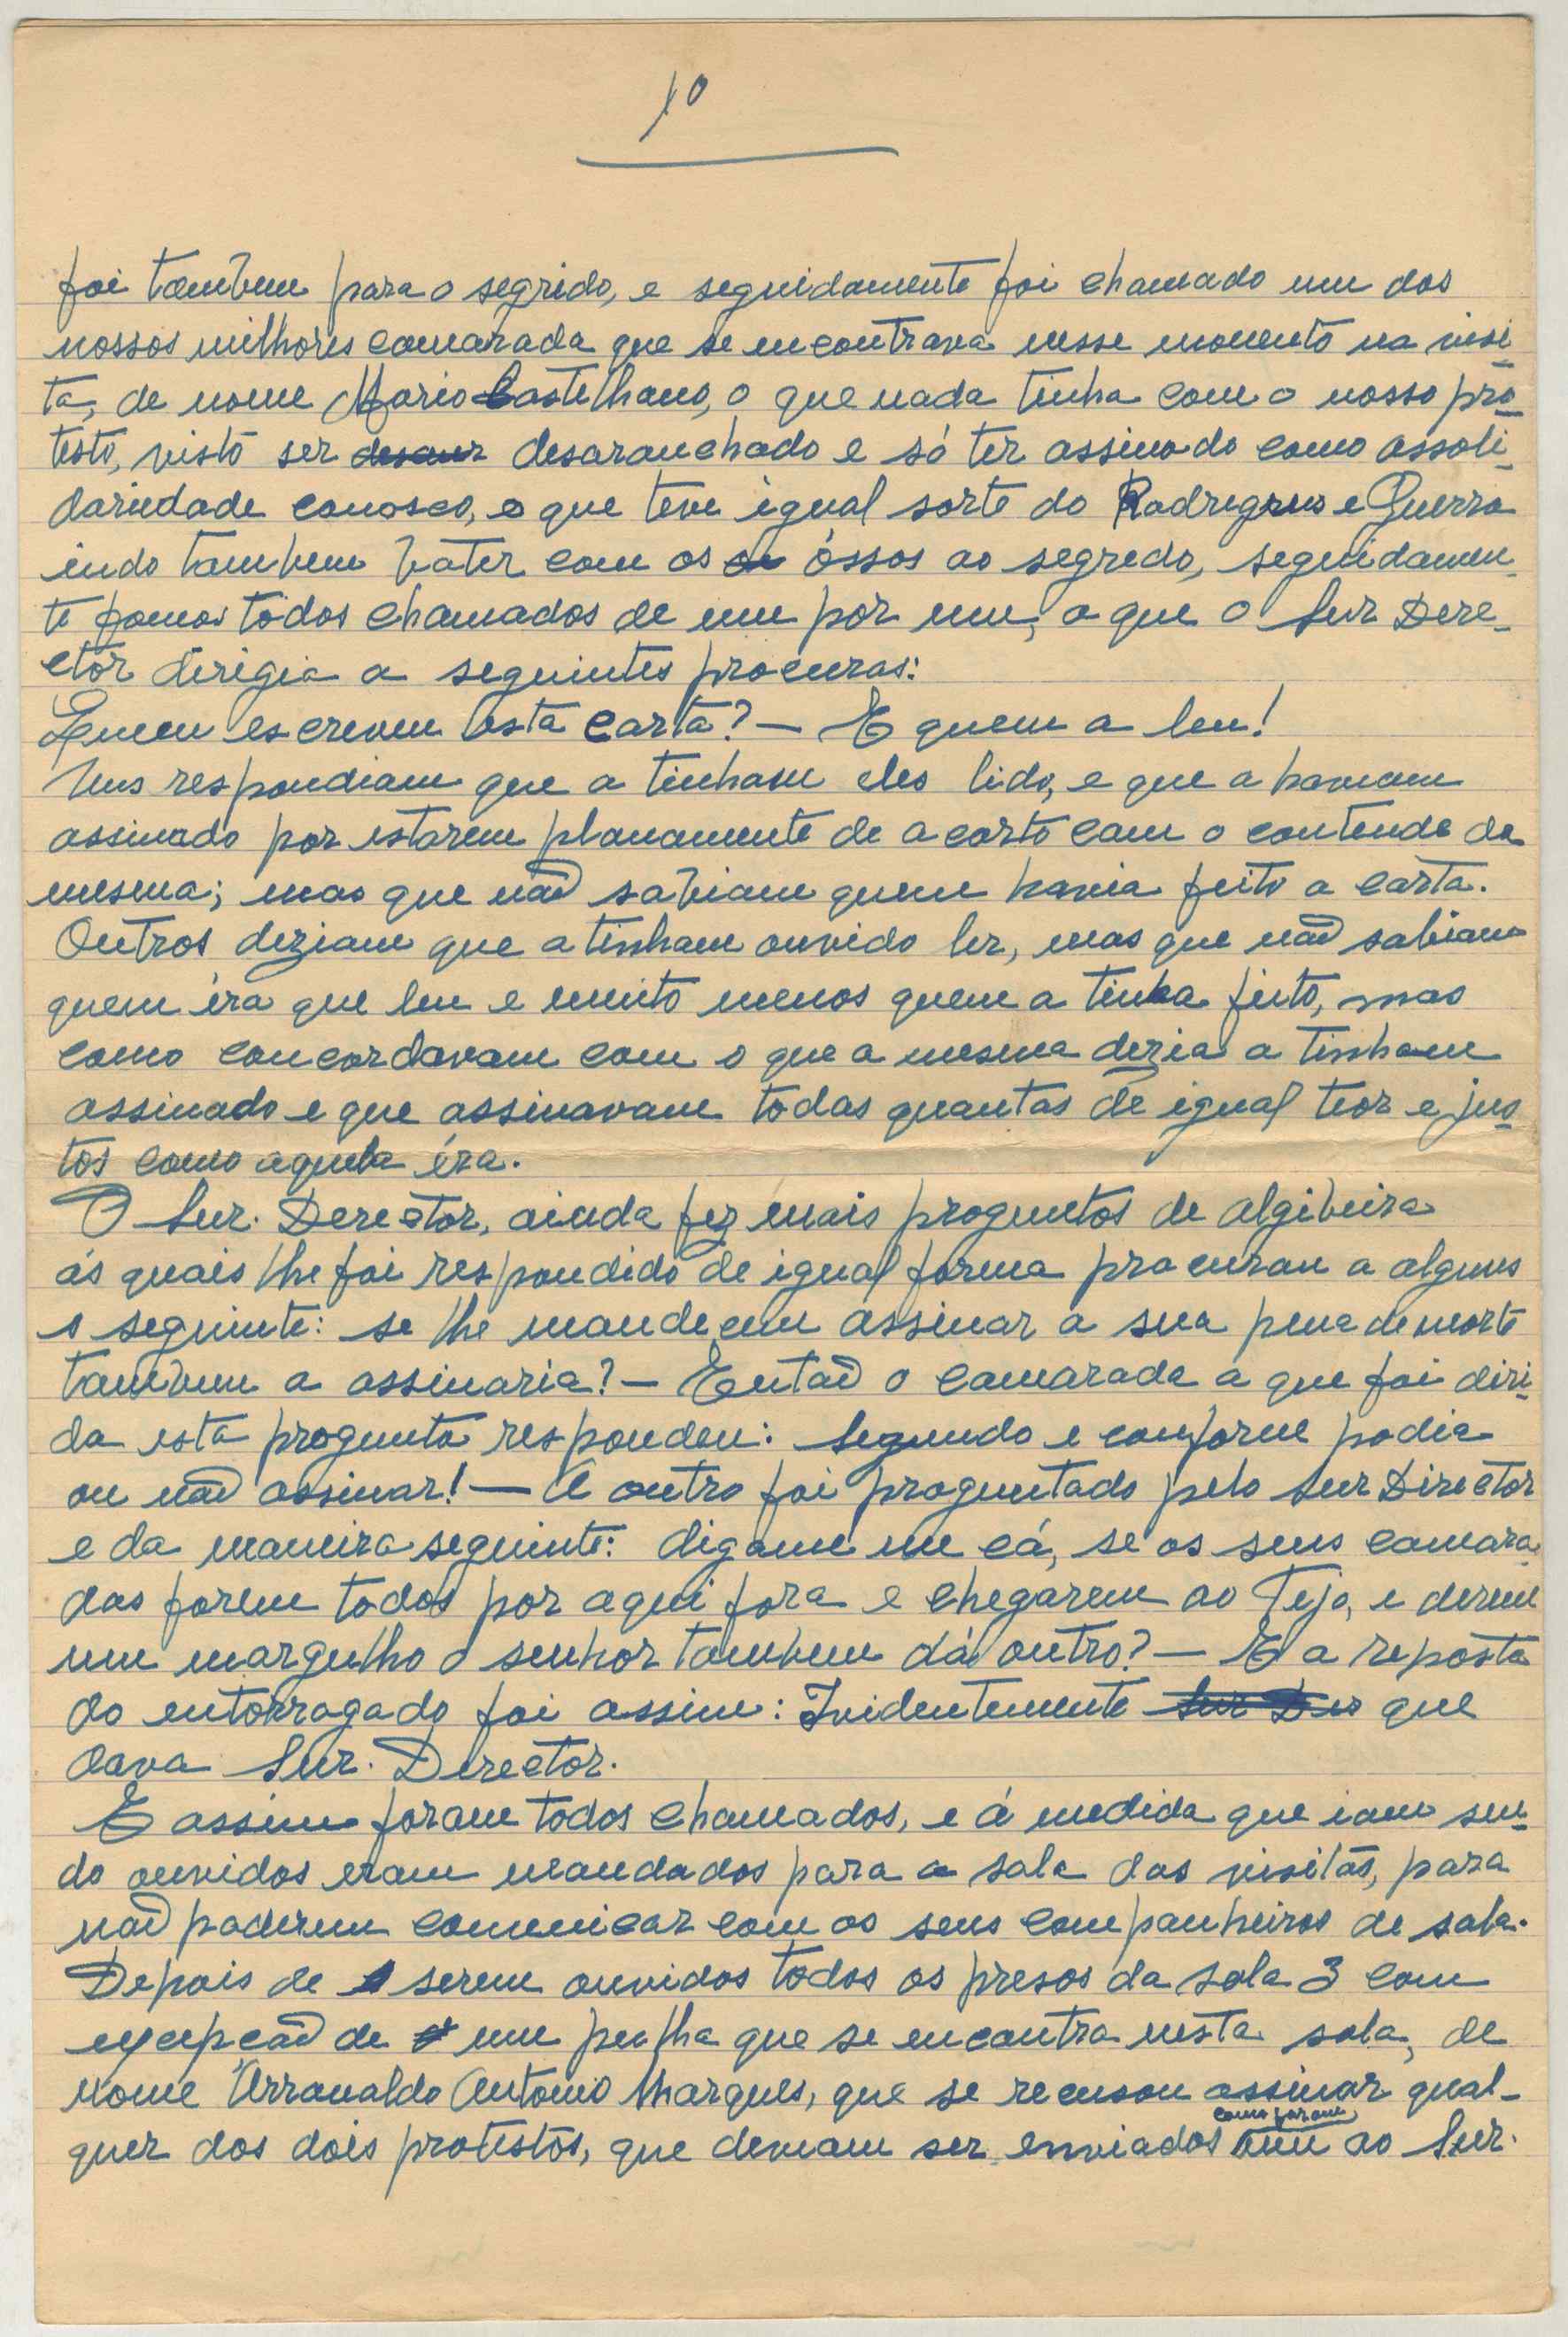 10
foi tambem para o segrido, e seguidamente foi chamado um dos
nossos milhores camarada que se encontrava nesse momento na visi-
ta, de nome Mario Castelhano, o que nada tinha com o nosso pro-
testo, visto ser desaranchado e só ter assinado como assoli-
dariedade conosco, o que teve igual sorte do Rodregues e Guerra
indo tambem bater com os óssos ao segredo, seguidamen-
te fomos todos chamados de um por um, a que o Snr Dere-
ctor derigia a seguintes procuras:
Quem escreveu esta carta? — E quem a leu!
Uns respondiam que a tinham eles lido, e que a haviam
assinado por estarem planamente de acorto com o contendo da
mesma; mas que não sabiam quem havia feito a carta.
Outros deziam que a tinham ouvido ler, mas que não sabiam
quem éra que leu e muito menos quem a tinha feito, mas
como concordavam com o que a mesma dezia a tinham
assinado e que assinavam todas quantas de igual teor e jus-
tos como aquela éra.
O Snr. Derector, ainda fez mais proguntos de algibeira
ás quais lhe foi respondido de igual forma procurou a alguns
o seguinte: se lhe mandecem assinar a sua pena de morte
tambem a assinaria? — Entaõ o camarada a que foi diri-
da esta progunta respondeu: Segundo e conforme podia
ou não assinar! — A outro foi proguntado pelo Snr Director
e da maneira seguinte: digame me cá, se os seus camara-
das forem todos por aqui fora e chegarem ao Tejo, e derem
um margulho o senhor tambem dá outro? — E a reposta
do entorragado foi assim: Ividentemente que
dava Snr. Derector.
E assim foram todos chamados, e á medida que iam sen-
do ouvidos eram mandados para a sala das visitas, para
não poderem comunicar com os seus companheiros de sala.
Depois de serem ouvidos todos os presos da sala 3 com
excepção de um pulha que se encontra nesta sala, de
nome Arranaldo Antonio Marques, que se recusou assinar qual-
quer dos dois protestos, que deviam ser enviados como foram ao Snr.